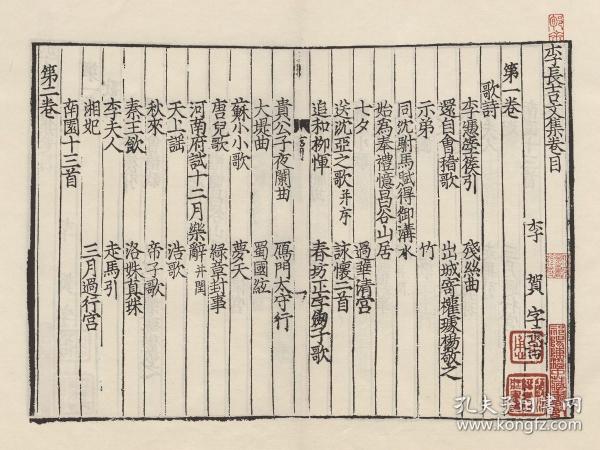 李長吉文集卷目
李賀字長吉
第一卷
歌詩
李憑箜篌引 殘絲曲
還自會稽歌 出城寄權璩楊敬之
示弟 竹
同沈駙馬賦得御溝水
始為奉禮憶昌谷山居
七夕 過華清宮
送沈亞之歌并序 詠懷二首
追和柳惲 春坊正字劒子歌
貴公子夜闌曲 鴈門太守行
大堤曲 蜀國絃
蘇小小歌 夢天
唐兒歌 綠章封事
河南府試十二月樂辭并閏
天上謡 浩歌
秋來 帝子歌
秦王飲 洛姝真珠
李夫人 走馬引
湘妃 三月過行宮
南園十三首
第二卷
孔夫子旧书网